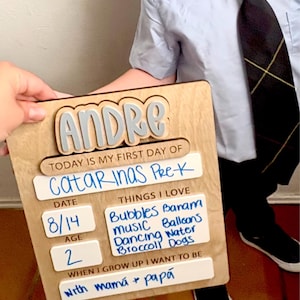 ANDRE
TODAY IS MY FIRST DAY OF
Catarinas Pre-K
DATE
8/14
AGE
2
THINGS I LOVE
Bubbles Banana
music Balloons
Dancing Water
Broccoli Dogs
WHEN I GROW UP I WANT TO BE
with mamá + papá